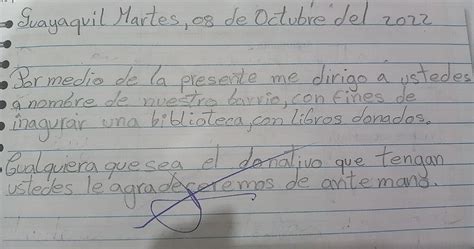 Guayaquil Martes, 08 de Octubre del 2022
Por medio de la presente me dirigo a ustedes
a nombre de nuestro barrio, con fines de
inagurar una biblioteca, con libros donados.
Cualquiera que sea el donativo que tengan
ustedes le agradeceremos de ante mano.